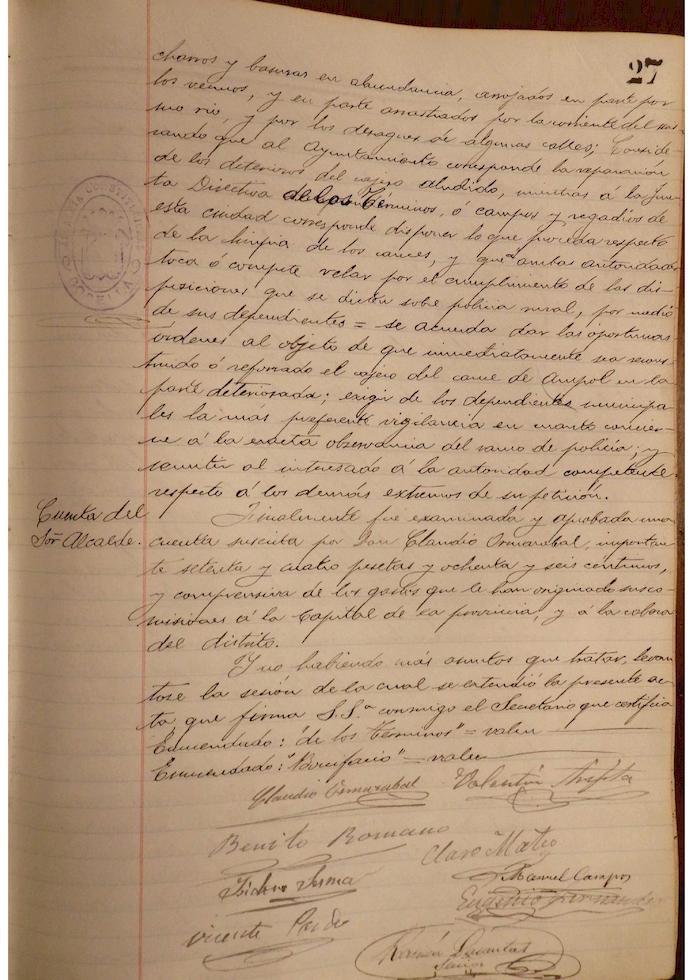 27
charros y basuras en abundancia, arrojados en parte por
los vecinos, y en parte arrastrados por la corriente del mis-
mo rio, y por los desagües de algunas calles; Conside-
rando que al Ayuntamiento corresponde la reparación
de los deterioros del cajero aludido, mientras á la Jun-
ta Directiva de los Términos, ó campos y regadios de
esta ciudad corresponde disponer lo que proceda respecto
de la limpia de los cauces, y que á ambas autoridades
toca ó compete velar por el cumplimiento de las dis-
posiciones que se dicten sobre policia rural, por medio
de sus dependientes = se acuerda dar las oportunas
ordenes al objeto de que inmediatamente sea recons-
truido ó reformado el cajero del cauce de en la
parte deteriorada; exigir de los dependientes municipa-
les la más preferente vigilancia en cuanto concier-
ne á la exacta observancia del ramo de policia; y
remitir al interesado á la autoridad competente
respecto á los demás extremos de su petición.
Cuenta del
Sor Alcalde.
Finalmente fué examinada y aprobada una
cuenta suscrita por Don Claudio Ormazabal, importan-
te setenta y cuatro pesetas y ochenta y seis centimos,
y comprensiva de los gastos que le han originado sus co-
misiones á la Capital de la provincia, y á la cabeza
del distrito.
Y no habiendo más asuntos que tratar, levan
tose la sesión de la cual se extendió la presente ac-
ta que firma S.Sª conmigo el Secretario que certifico
Enmendado: "de los Términos" = valen
Enmendado: "Bonifacio" = valen
Claudio Ormazabal Valentín
Benito Romano Claro Mateo
Isidoro Manuel Campos
Eugenio Fernandez
Vicente Pardo
Ramón